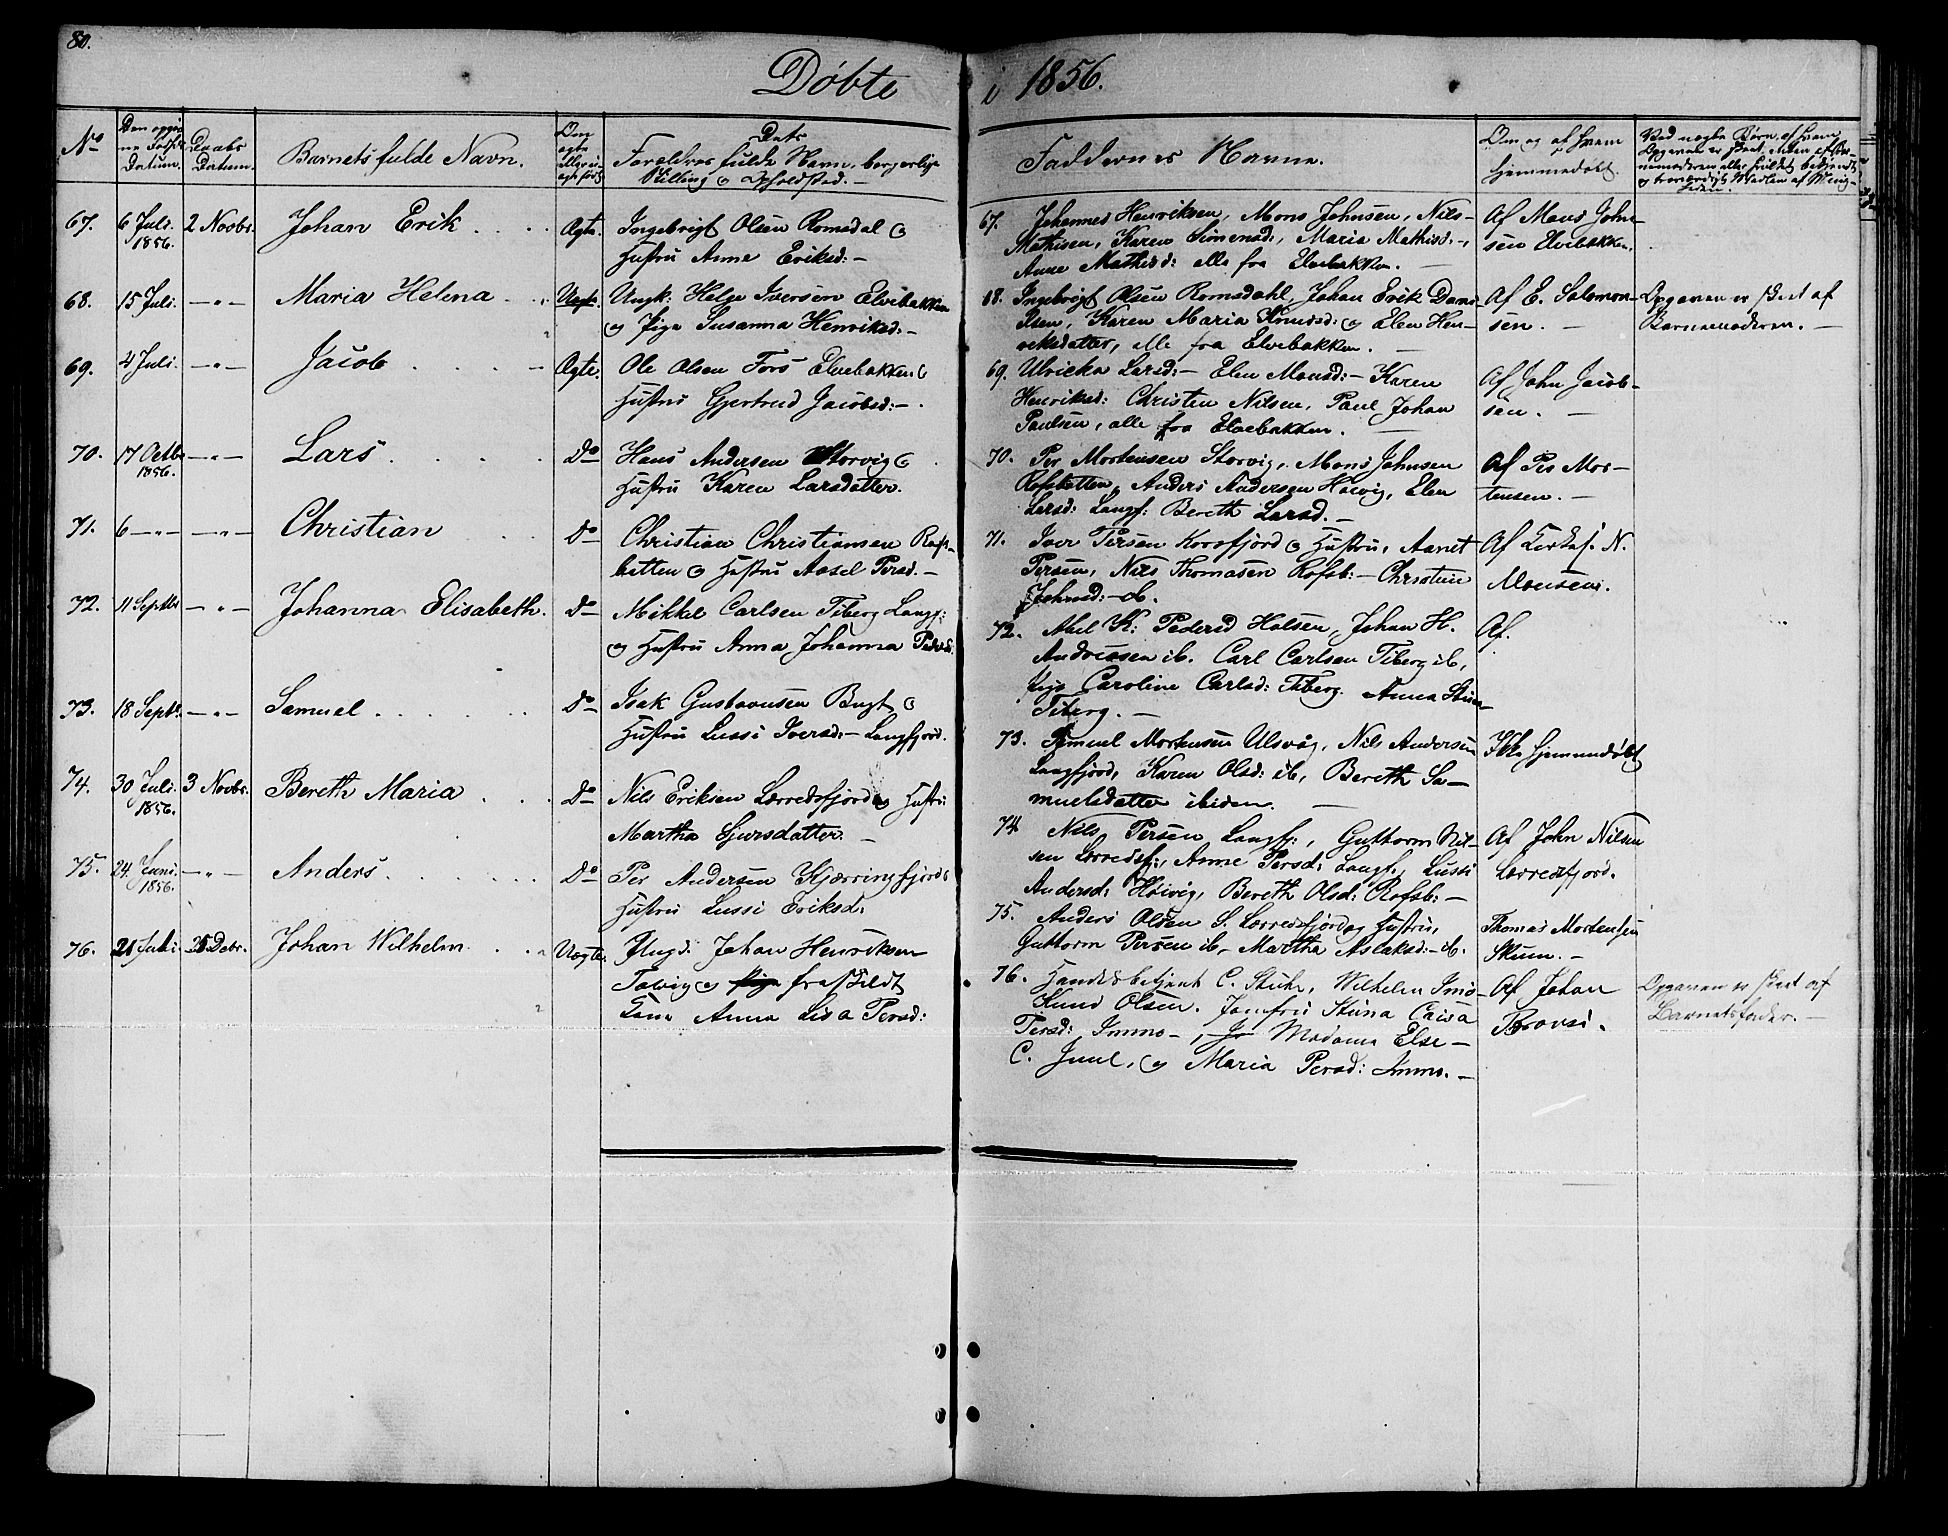 80.
Døbte i 1856.
No
Datum.
Daabs
Datum.
Barnets fulde Navn.
Om
ægte
Dets
Forældres fulde Navn, borgerlige
Stilling og Opholdsted.
Faddernes Navne.
Om og af hvem
hjemmedøbt.
67. 6 Juli 1856. 2 Novbr. Johan Erik Ægte.
Ingebrigt Olsen Romsdal og
Hustru Anne Eriksd:
67. Johannes Henriksen, Mons Johnsen, Nils
Mathisen, Karen Simonsd:, Maria Mathisd:,
Anne Mathisd: alle fra Elvebakken.
Af Mons John-
sen Elvebakken.
68. 15 Juli. -"- Maria Helena Uægte.
Ungk: Helge Iversen Elvebakken
og Pige Susanna Henriksd:
68. Ingebrigt Olsen Romsdahl, Johan Erik
Karen Maria Knudsd: og Elen Hen-
riksdatter, alle fra Elvebakken.
Af E. Salomon-
sen.
Opgaven er skeet af
Barnemoderen.
69. 4 Juli. -"- Jacob Ægte.
Ole Olsen Fors Elvebakken og
Hustru Gjertrud Jacobsd:
69. Ulricka Larsd: Elen Monsd: Karen
Henriksd: Christen Nilsen, Paul Johan
Paulsen, alle fra Elvebakken.
Af John Jacob-
sen.
70. 17 Octbr 1856. -"- Lars Do
Hans Andersen Storvig og
Hustru Karen Larsdatter.
70. Per Mortensen Storvig, Mons Johnsen
Rafsbotten, Anders Andersen Hoivig, Elen
Larsd: Langf: Bereth Larsd.
Af Per Mor-
tensen.
71. 6 -"- -"- Christian Do
Christian Christiansen Rafs-
botten og Hustru Aasel Persd.
71. Iver Persen Korsfjord og Hustru, Aanet
Persen, Nils Thomasen Rafsb: Christine
Johnsd: ib.
N.
Monsen.
72. 11 Septbr -"- Johanna Elisabeth. Do
Mikkel Carlsen Tiberg Langf:
og Hustru Anna Johanna Pedersd:
72. Abel K: Pedersd Halsen, Johan H.
Andreasen ib. Carl Carlsen Tiberg ib,
Pige Caroline Carlsd: Tiberg. Anna
Tiberg.
Af
73. 18 Septbr. -"- Samuel Do
Isak Gustavusen Bugt og
Hustru Lussi Iversd: Langfjord.
73. Samuel Mortensen Ulsvåg, Nils Andersen
Langfjord, Karen Olsd: ib, Bereth Sa-
muelsdatter ibiden.
Ikke hjemmedøbt
74. 30 Juli. 1856. 3 Novbr. Bereth Maria Do
Nils Eriksen Lerredsfjord og Hustru
Martha Sjursdatter.
74. Nils Persen Langf:, Guttorm Nil-
sen Lerredsf:, Anne Persd: Langf., Lussi
Andersd: Hoivig, Bereth Olsd: Rafsb:
Af John Nilsen
Lerredsfjord.
75. 24 Juni. 1856. -"- Anders Do
Per Andersen Kjærringfjord og
Hustru Lussi Eriksd:
75. Anders Olsen S. Lerredsfjord og Hustru,
Guttorm Persen ib, Martha Aslaksd: ib.
Thomas Mortensen
Skum.
76. 21 Juli. 25 Debr. Johan Wilhelm Uægte.
Ungd: Johan Henriksen
Talvig og fraskildt
Kone Anna Lisa Persd:
76. Handelsbetjent C. Stuhr, Wilhelm
Olsen. Jomfru Stina Caisa
Persd: Immo, Madame Else
C. Juul, og Maria Persd: Immo.
Af Johan
Opgaven er skeet af
Barnets fader.